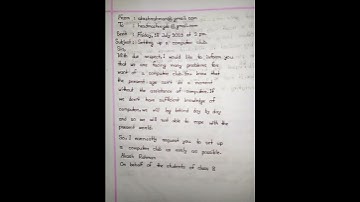 From : akashrahman@gmail.com
To : headmasterght@gmail.com
Sent : Friday, 15 July 2022 at 3 pm
Subject : Setting up a computer club.
Sir,
With due respect, I would like to inform you
that we are facing many problems for
want of a computer club. You know that
the present age can't do a moment
without the assistance of computers. If
we don't have sufficient knowledge of
computer, we will lag behind day by day
and so we will not able to cope with the
present world.
So, I earnestly request you to set up
a computer club as early as possible.
Akash Rahman
On behalf of the students of class 8